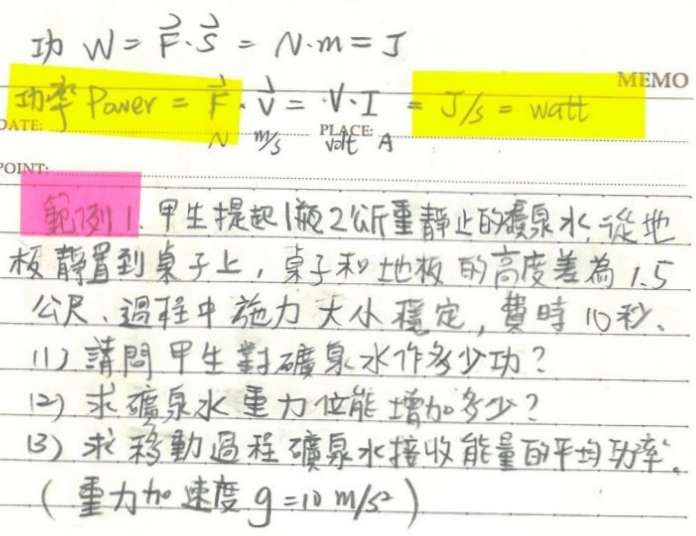 功 W = F⃗·S⃗ = N·m = J
MEMO
功率 Power = F⃗·V⃗ = ·V·I = J/s = watt
DATE: N m/s PLACE: volt A
POINT:
範例1. 甲生提起1瓶2公斤重靜止的礦泉水,從地
板靜置到桌子上,桌子和地板的高度差為1.5
公尺、過程中施力大小穩定,費時10秒、
(1) 請問甲生對礦泉水作多少功?
(2) 求礦泉水重力位能增加多少?
(3) 求移動過程礦泉水接收能量的平均功率。
(重力加速度 g=10 m/s²)